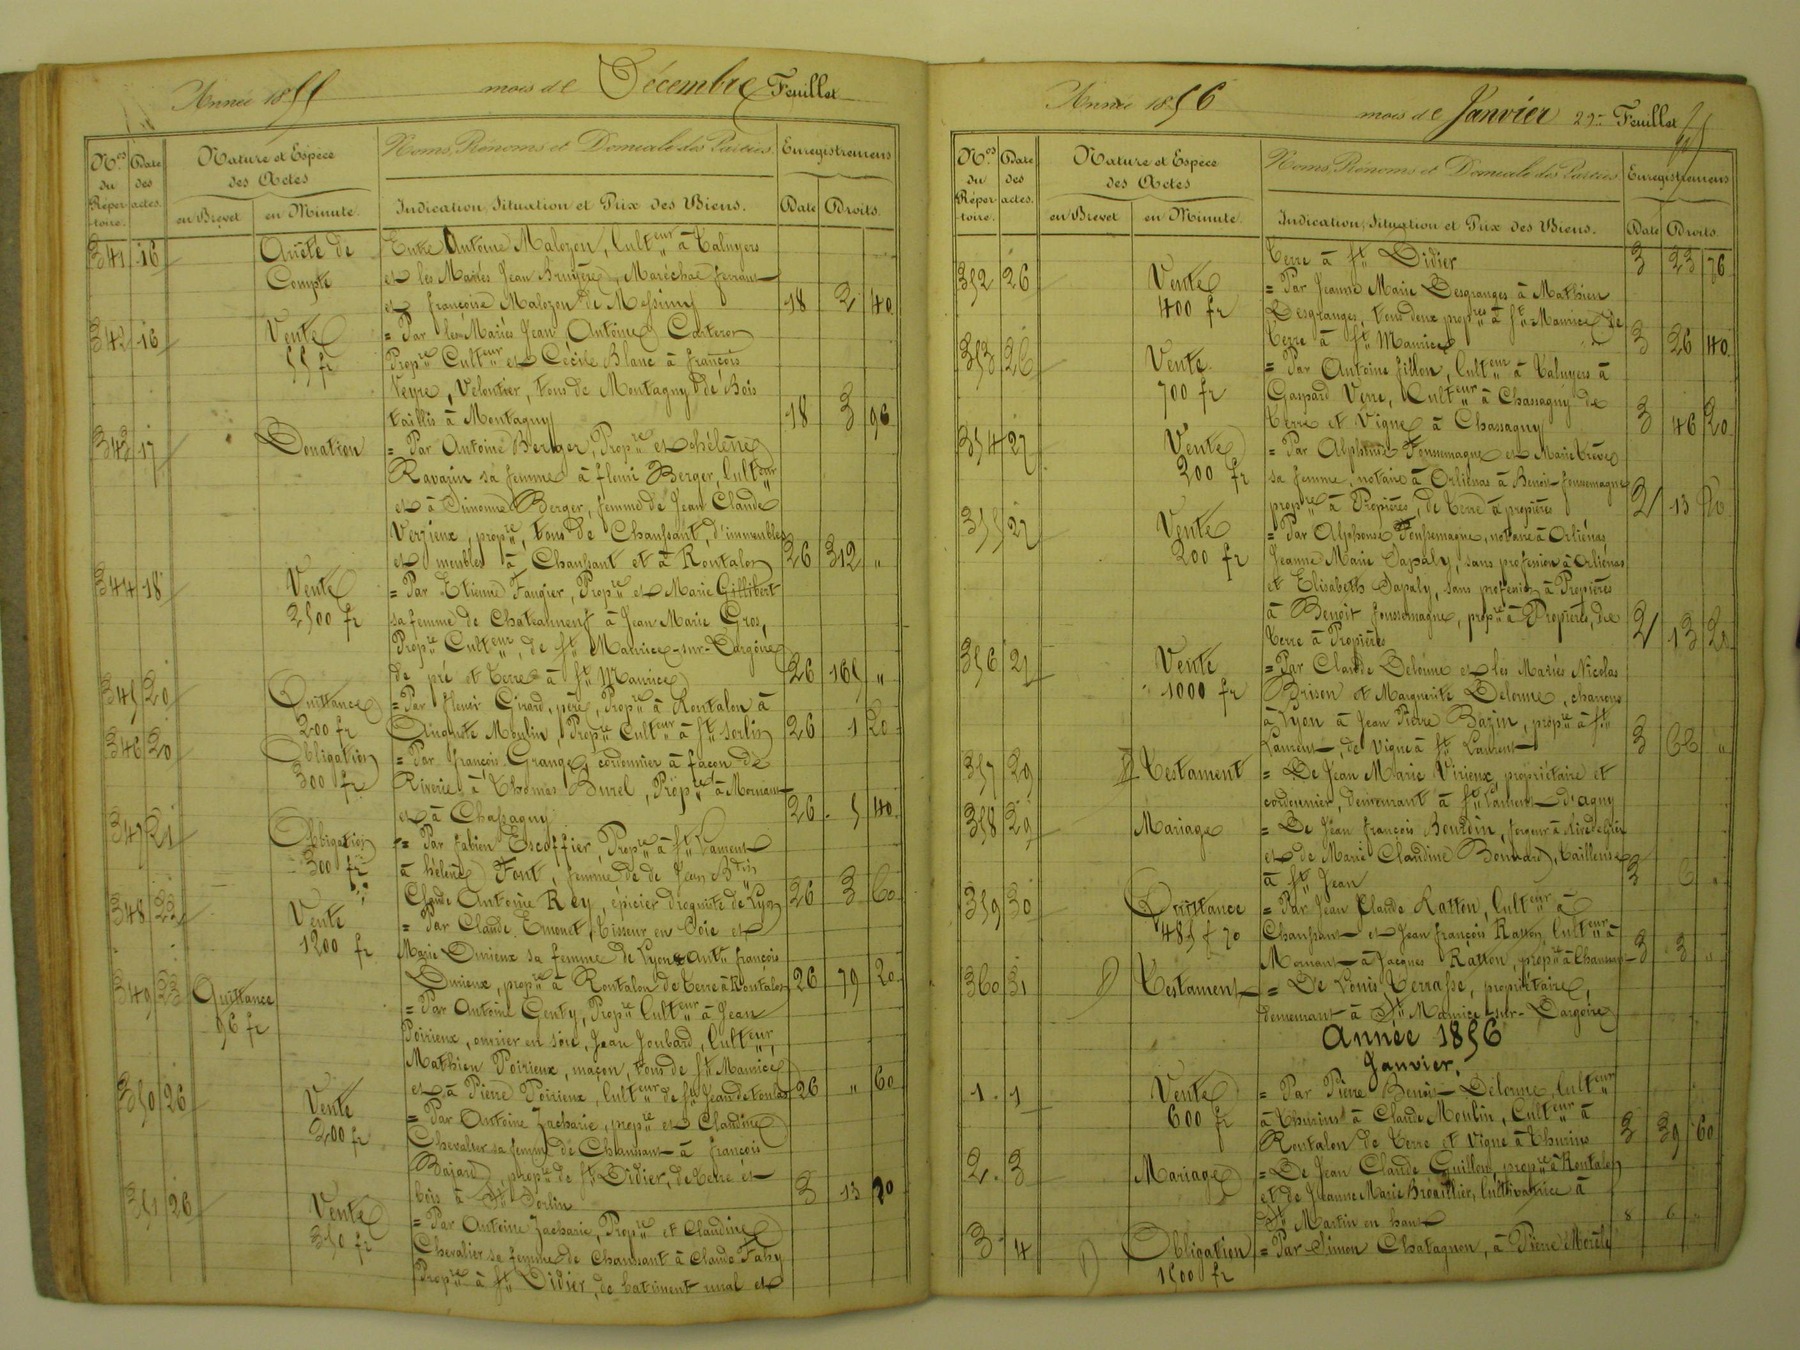 Année 1855 mois de Décembre Feuillet
Nos du Répertoire. Date des actes. Nature et Espèce des Actes Noms, Prénoms et Domicile des Parties. Enregistrement
en Brevet en Minute Indication, Situation et Prix des Biens. Date Droits.
341 16 Arrêté de Entre Antoine Malozon, Culteur à Taluyers
Compte et les Mariés Jean Bruyère, Maréchal ferrant
et françoise Malozon de Messimy 18 2 40
342 16 Vente = Par les Mariés Jean Antoine Carteron
55 fr Propre Culteur et Cécile Blanc à françois
Veyre, Veloutier, tous de Montagny de Bois
taillis à Montagny 18 3 96
343 17 Donation = Par Antoine Berger, Propre et hélène
Ravazin sa femme à fleuri Berger, Culteur
et à Simonne Berger, femme de Jean Claude
Verzieux, propre, tous de Chaussant, d'immeubles
et meubles à Chaussant et à Rontalon 26 312 "
344 18 Vente = Par Etienne Faugier, Propre et Marie Gillibert
2500 fr sa femme de Chateauneuf à Jean Marie Gros,
Propre Culteur, de St Maurice-sur-Dargoire
de pré et terre à St Maurice 26 165 "
345 20 Quittance = Par fleuri Girard, père, Propre à Rontalon à
200 fr Auguste Moulin, Propre Culteur à St Sorlin 26 1 20
346 20 Obligation = Par françois Grange, cordonnier à façon de
300 fr Riverie à Thomas Burel, Propre à Mornant
et à Chassagny 26 5 40
347 21 Obligation = Par fabien Escoffier, Propre à St Laurent
300 fr à hélène Font, femme de de Jean Btiste
Claude Antoine Rey, épicier droguiste de Lyon 26 3 60
348 22 Vente = Par Claude Emonet, Tisseur en Soie et
1200 fr Marie Durieux sa femme de Lyon à Antne françois
Durieux, propre à Rontalon de terre à Rontalon 26 79 20
349 23 Quittance = Par Antoine Genty, Propre Culteur à Jean
96 fr Poirieux, ouvrier en soie, Jean Joubard, Culteur,
Mathieu Poirieux, maçon, tous de St Maurice
et à Pierre Poirieux, Culteur de St Jean de toulas 26 " 60
350 26 Vente = Par Antoine Zacharie, propre et Claudine
200 fr Chevalier sa femme de Chaussant à françois
Bajard, propre de St Didier, de terre et
bois à St Sorlin 3 13 20
351 26 Vente = Par Antoine Zacharie, Propre et Claudine
350 fr Chevalier sa femme de Chaussant à Claude Fahy
Propre à St Didier, de batiment rural et
Année 1856 mois de Janvier 29me Feuillet
Nos du Répertoire. Date des actes. Nature et Espèce des Actes Noms, Prénoms et Domicile des Parties Enregistrement
en Brevet en Minute Indication, Situation et Prix des Biens. Date Droits.
terre à St Didier 3 23 76
352 26 Vente = Par Jeanne Marie Desgranges à Mathieu
400 fr Desgranges, tous deux propres à St Maurice de
terre à St Maurice 3 26 40
353 26 Vente = Par Antoine fillon, Culteur à Taluyers à
700 fr Gaspard Verre, Culteur à Chassagny de
terre et Vigne à Chassagny 3 46 20
354 27 Vente = Par Alphonse Fonssemagne et Marie Trève
200 fr sa femme, notaire à Orliénas à Benoit fonssemagne
propre à Propières, de terre à propières 2 13 20
355 27 Vente = Par Alphonse Fonssemagne, notaire à Orliénas,
200 fr Jeanne Marie Sapaly, sans profession à Orliénas
et Elisabeth Sapaly, sans profession à Propières
à Benoit fonssemagne, propre à Propières, de
terre à Propières 2 13 20
356 27 Vente = Par Claude Delorme et les Mariés Nicolas
1000 fr Brison et Marguerite Delorme, charrons
à Lyon à Jean Pierre Bazin, propre à St
Laurent, de vigne à St Laurent 3 66 "
357 29 Testament = De Jean Marie Virieux, propriétaire et
cordonnier, demeurant à St Laurent d'agny
358 29 Mariage = De Jean françois Bourdin, forgeur à Rive de Gier
et de Marie Claudine Bonnard, tailleuse
à St Jean 3 6 "
359 30 Quittance = Par Jean Claude Ratton, Culteur à
485 f 70 Chaussant et Jean françois Ratton, Culteur à
Mornant à Jacques Ratton, propre à Chaussant 3 3 "
360 31 Testament = De Louis Terrasse, propriétaire,
demeurant à St Maurice-sur-Dargoire
Année 1856
Janvier.
1 1 Vente = Par Pierre Benoit Delorme, Culteur
600 fr à Thurins à Claude Moulin, Culteur à
Rontalon de terre et vigne à Thurins 3 39 60
2 3 Mariage = De Jean Claude Guillon, propre à Rontalon
et de Jeanne Marie Brouillier, Cultivatrice à
St Martin en haut 8 6 "
3 4 Obligation = Par Simon Chatagnon, à Pierre Morely
1500 fr